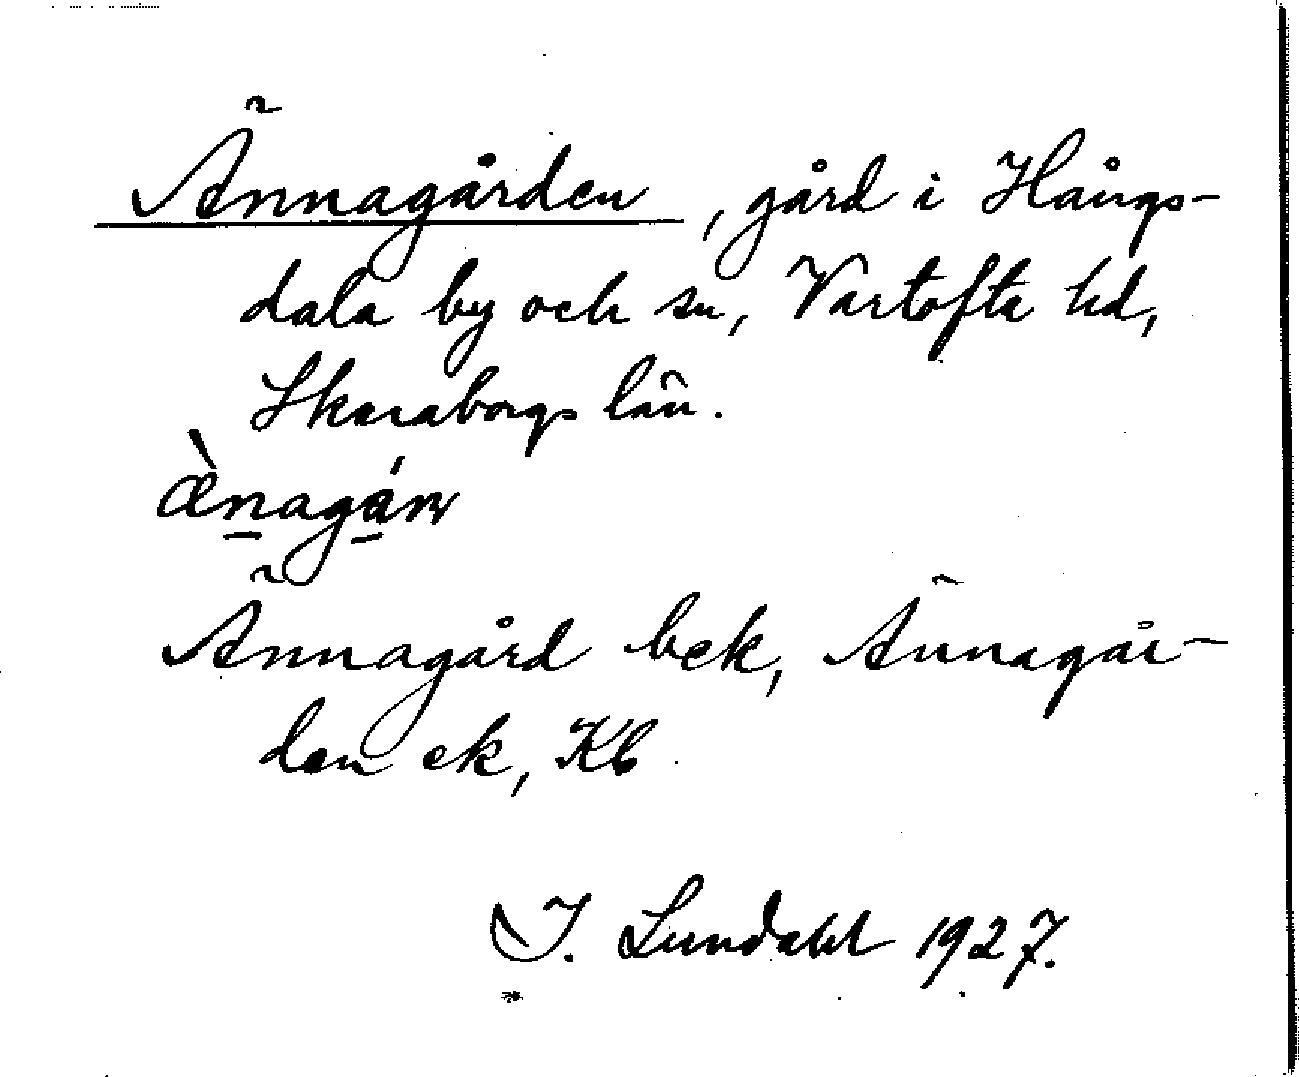 Ännagården, gård i Hångs-
dala by och sn, Vartofta hd,
Skaraborgs län.
æ̀nagár
Ännagård bek, Ännagår-
den ek, Kb.
I. Lundahl 1927.